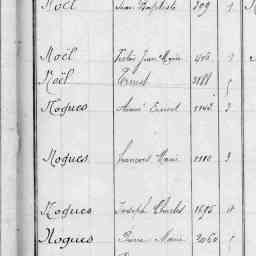 Noël Jean Baptiste 209 1
Noël Jean Marie
Noël Ernest
Nogues Aimé Ernest 1142 3
Nogues François Marie 1110 3
Nogues Joseph Charles 1695 4
Nogues Pierre Marie 2060